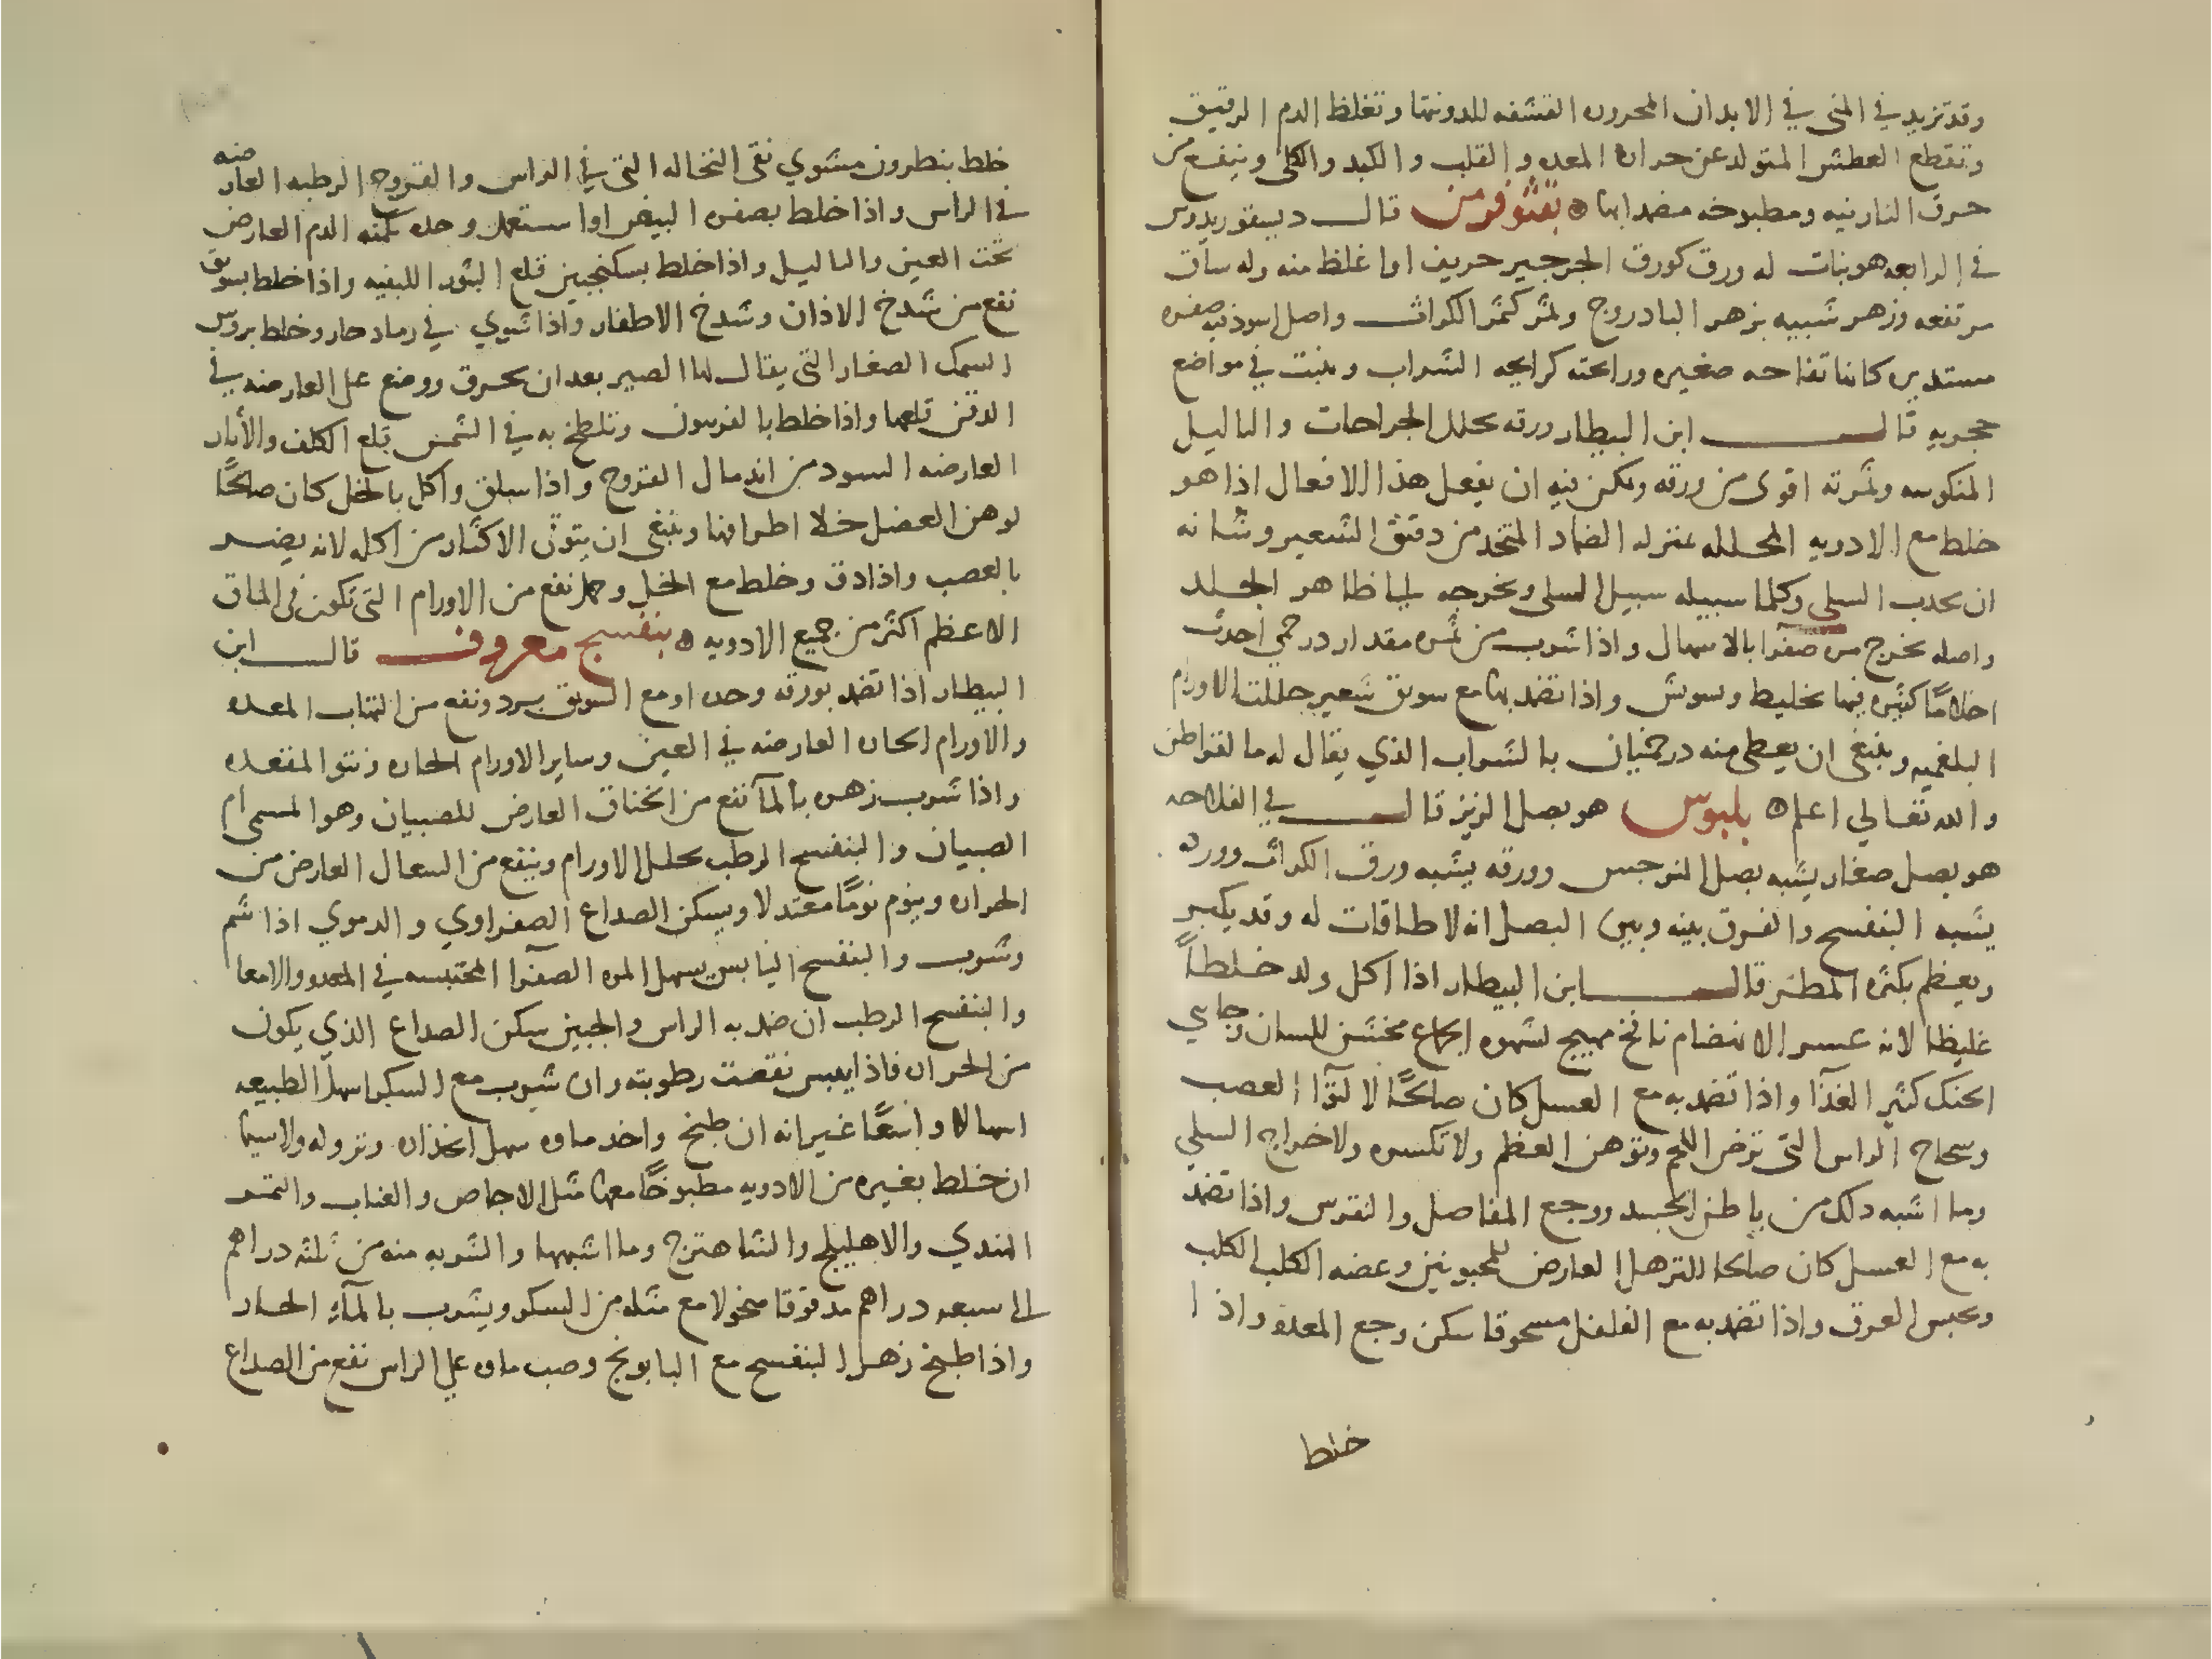 وقد تزيد في المني في الابدان المحروره القشفه للدونتها وتغلظ الدم الرقيق
وتقطع العطش المتولد عن حراره المعده والقلب والكبد والكلى وينفع من
حرق النار نيه ومطبوخه مضمدا بها ه بقثوفرمن قال ديسقوريدوس
في الرابعه هو نبات له ورق كورق الجرجير حريف اما غلظ منه وله ساق
مرتفعه وزهر شبيه بزهر البادروج وثمر كثمر الكراث واصل اسود فيه صفره
مستدير كانها تفاحه صغيره ورائحته كرايحه الشراب وينبت في مواضع
حجريه قال ابن البيطار ورقه يحلل الجراحات والثاليل
المنكوسه وثمرته اقوى من ورقه ويمكن فيه ان يفعل هذا الافعال اذا هو
خلط مع الادويه المحلله بمنزله الضماد المتخد من دقيق الشعير وشانه
ان يجذب السلي وكلما سبيله سبيل السلى ويخرجه الى ظاهر الجلد
واصله يخرج مره صفرا بالاسهال واذا شرب من ثمره مقدار درخمي احدث
احلامًا كثيره فيها تخليط وتسوش واذا تضمد بها مع سويق شعير حللت الاورام
البلغميه وينبغي ان يعطى منه درخميان بالشراب الذي يقال له مالقراطن
والله تعالي اعلم ه بلبوس هو بصل الزيز قال في الفلاحه
هو بصل صغار يشبه بصل النرجس وورقه يشبه ورق الكراث وورده
يشبه البنفسج والفرق بينه وبين البصل انه لا طاقات له وقد يكبر
ويعظم بكثره المطر قال ابن البيطار اذا اكل ولد خلطاً
غليظا لانه عسر الانهضام نافخ مهيج لشهوه الجماع مخشن للسان وجاسي
الحنك كثير الغذا واذا تضمد به مع العسل كان صالحًا لالتوآ العصب
وسحاج الراس التي ترض اللحم وتوهن العظم ولا تكسره ولاخراج السلي
وما اشبه دلك من باطن الجسد ووجع المفاصل والنقرس واذا تضمد
به مع العسل كان صالحا للترهل العارض للمحبونين وعضه الكلب الكلب
ويحبس العرق واذا تضمد به مع الفلفل مسحوقا سكن وجع المعده واذا
خلط
خلط بنطرون مشوي نقى النخاله التي في الراس والقروح الرطبه العارضه
في الراس واذا خلط بصفره البيض اوا ستعمل وحده كمنه الدم العارض
تحت العين والثاليل واذا خلط بسكنجبين قلع البثور اللبنيه واذا خلط بسويق
نفع من شدخ الاذان وشدخ الاظفار واذا شوي في رماد حار وخلط بروس
السمك الصغار التي يقال لها الصير بعد ان يحرق ووضع على العارضه في
الدقن قلعها واذا خلط بالفرسون وتلطخ به في الشمس قلع الكلف والأثار
العارضه السود من اندمال القروح واذا سلق واكل بالخل كان صالحًا
لوهن العضل خلا اطرافها وينبغي ان يتوقى الاكثار من اكله لانه يضر
بالعصب واذا دق وخلط مع الخل وحمل نفع من الاورام التي تكون في الماق
الاعظم اكثر من جميع الادويه ه بنفسج معروف قال ابن
البيطار اذا تضمد بورقه وحده او مع السويق برد ونفع من التهاب المعده
والاورام الحاره العارضه في العين وساير الاورام الحاره ونتو المقعده
واذا شرب زهره بالمآ نفع من الخناق العارض للصبيان وهو المسمى ام
الصبيان والبنفسج الرطب يحلل الاورام وينفع من السعال العارض من
الحراره وينوم نومًا معتدلا ويسكن الصداع الصفراوي والدموي اذا شم
وشرب والبنفسج اليابس يسهل المره الصفرآ المحتبسه في المعده والامعا
والبنفسج الرطب ان ضمد به الراس والجبين سكن الصداع الذي يكون
من الحراره فاذا يبس نقصت رطوبته وان شرب مع السكر اسهل الطبيعه
اسهالا واسعًا غير انه ان طبخ واخد ماوه سهل انحذاره ونزوله ولاسيما
ان خلط بغيره من الادويه مطبوخًا معها مثل الاجاص والعناب والتمر
الهندي والاهليلج والشاهترج وما اشبهها والشربه منه من ثلثه دراهم
الى سبعه دراهم مدقوقا منخولا مع مثله من السكر ويشرب بالمآء الحار
واذا طبخ زهر البنفسج مع البابونج وصب ماوه علي الراس نفع من الصداع